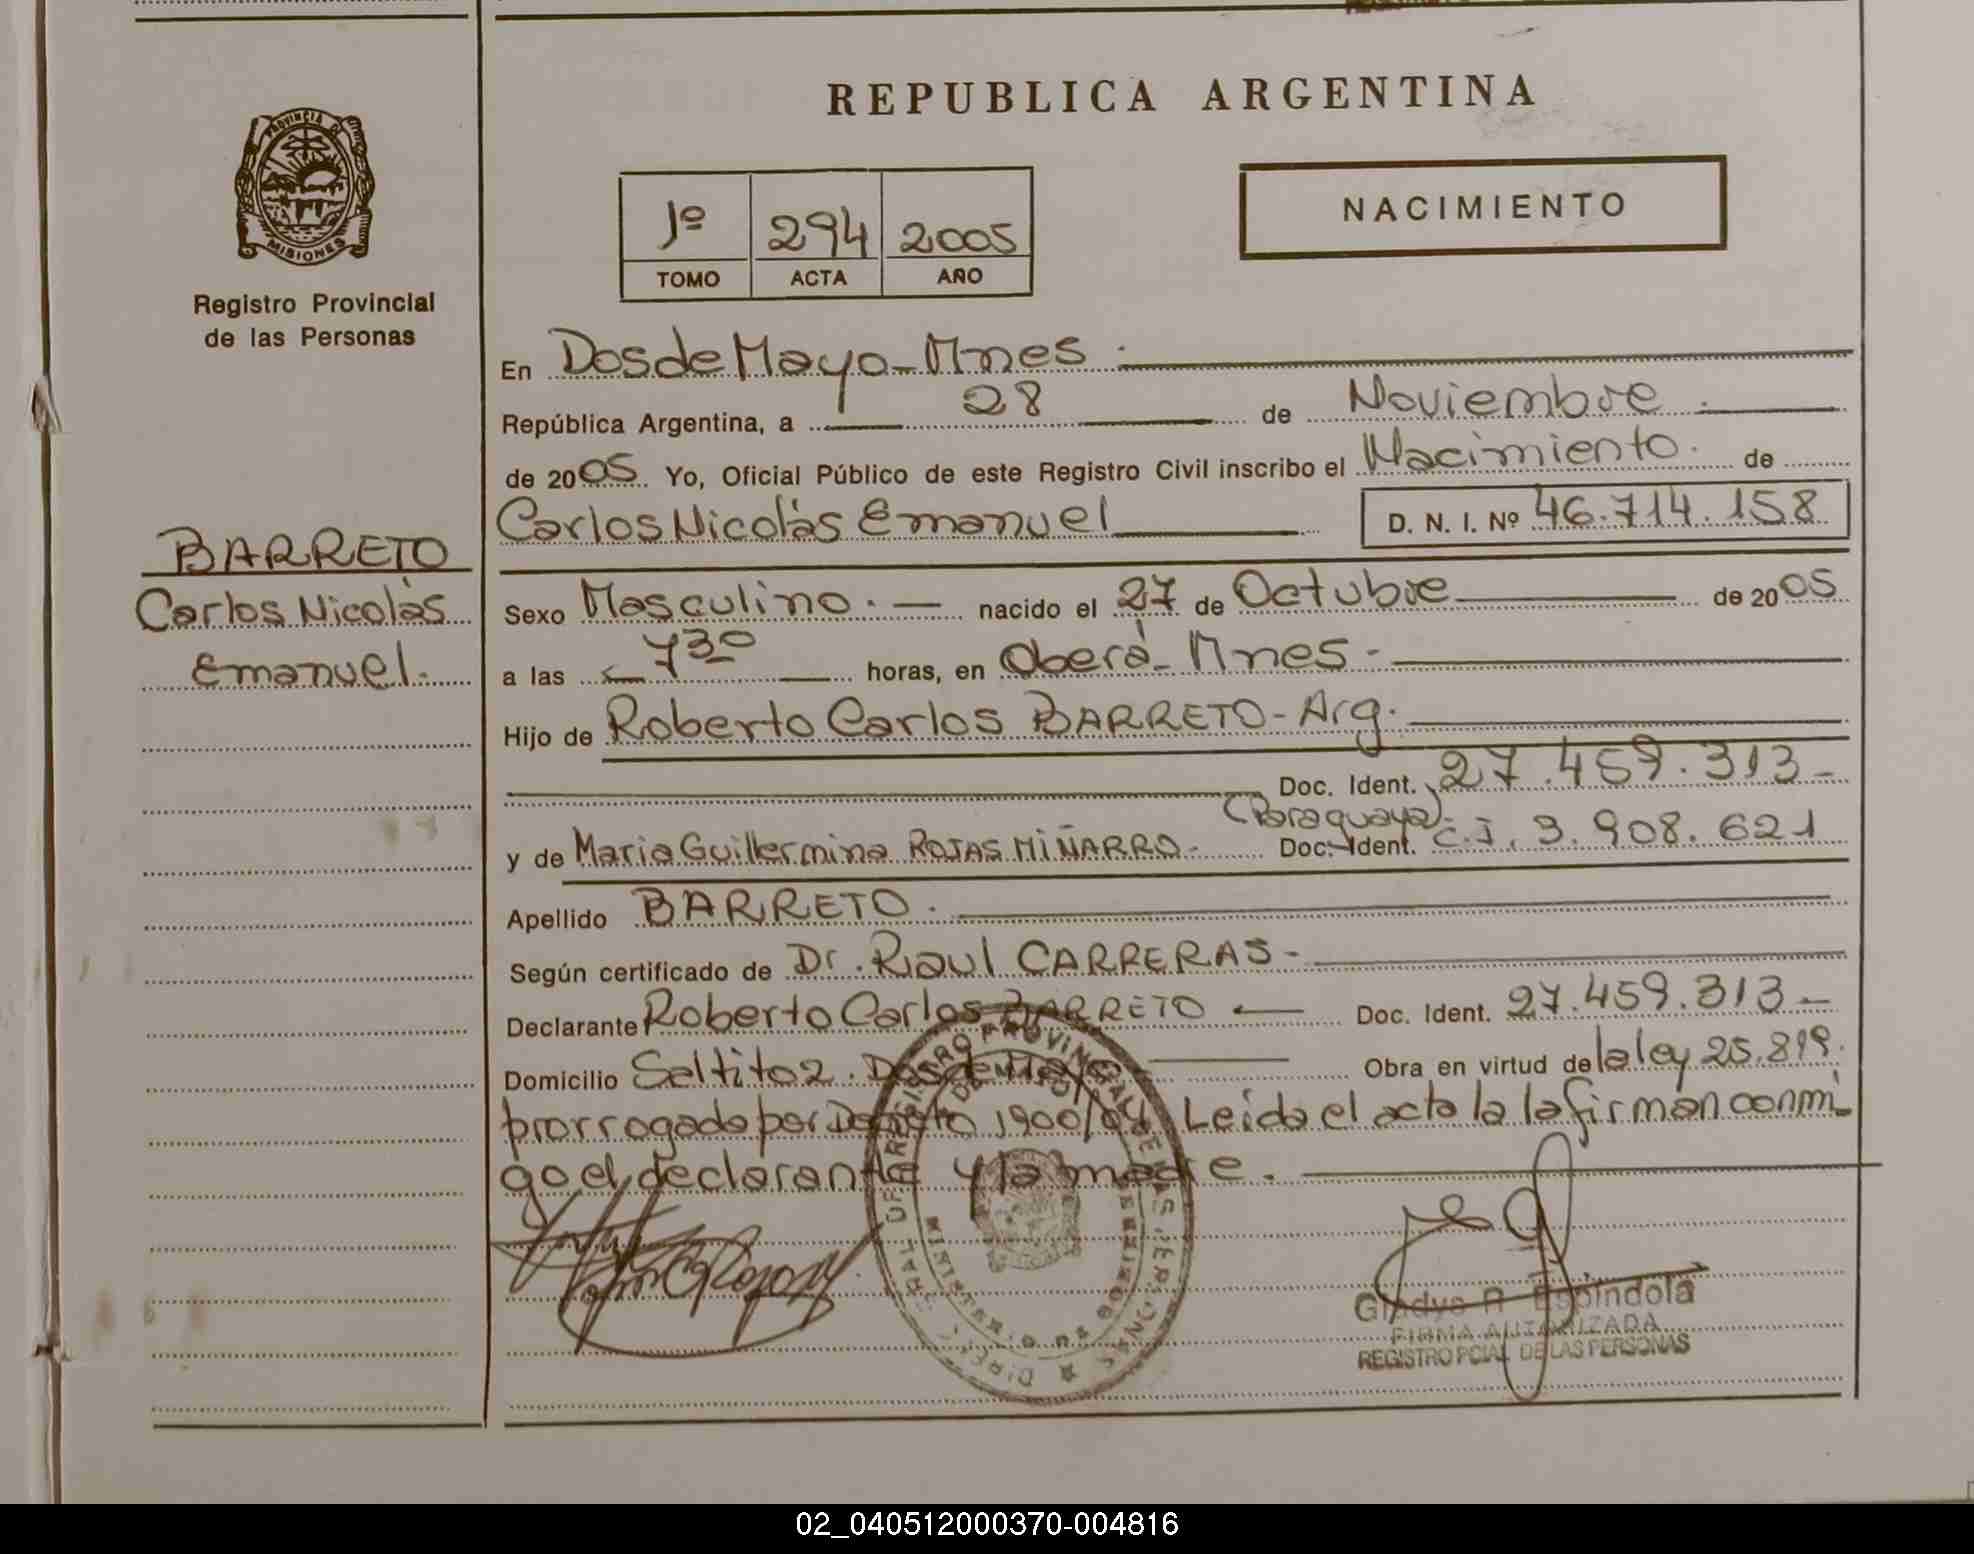 REPUBLICA ARGENTINA
PROVINCIA DE
MISIONES
Registro Provincial
de las Personas
Jº 294 2005
TOMO ACTA AÑO
NACIMIENTO
BARRETO
Carlos Nicolás
Emanuel.
En Dos de Mayo - Mnes.
República Argentina, a 28 de Noviembre.
de 2005. Yo, Oficial Público de este Registro Civil inscribo el Nacimiento. de
Carlos Nicolás Emanuel D. N. I. Nº 46.714.158
Sexo Masculino. — nacido el 27 de Octubre de 2005
a las 7 30 horas, en Oberá - Mnes -
Hijo de Roberto Carlos BARRETO - Arg.
Doc. Ident. 27.459.313 -
(Paraguaya)
y de Maria Guillermina ROJAS MIÑARRO - Doc. Ident. C.I. 3.908.621
Apellido BARRETO.
Según certificado de Dr. Raul CARRERAS -
Declarante Roberto Carlos BARRETO — Doc. Ident. 27.459.313 -
Domicilio Saltito 2. Dos de Mayo Obra en virtud de la ley 25.819.
prorrogada por Decreto 1900/04 Leida el acta la la firman conmi
go el declarante y la madre.
Gladys A. Espindola
FIRMA AUTORIZADA
REGISTRO PCIAL DE LAS PERSONAS
02_040512000370-004816